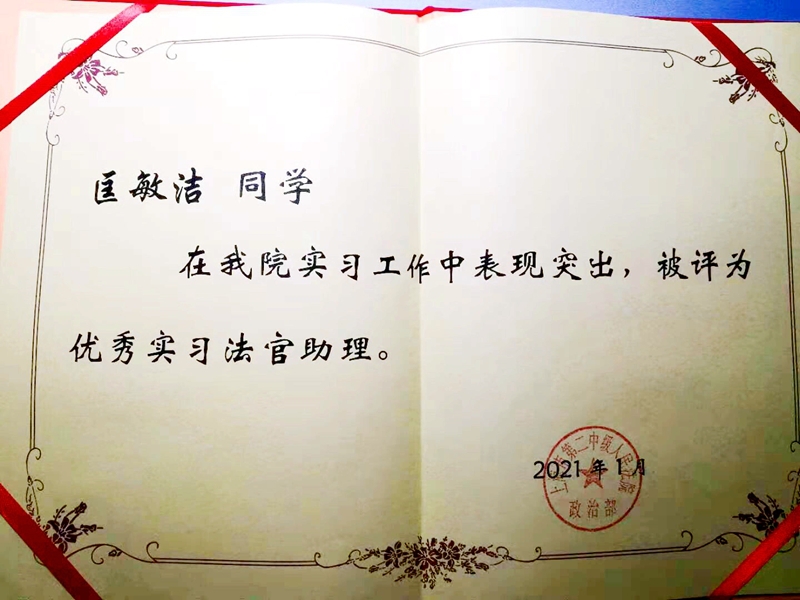 匡敏洁 同学
在我院实习工作中表现突出，被评为
优秀实习法官助理。
上海市第二中级人民法院
2021年1月
政治部